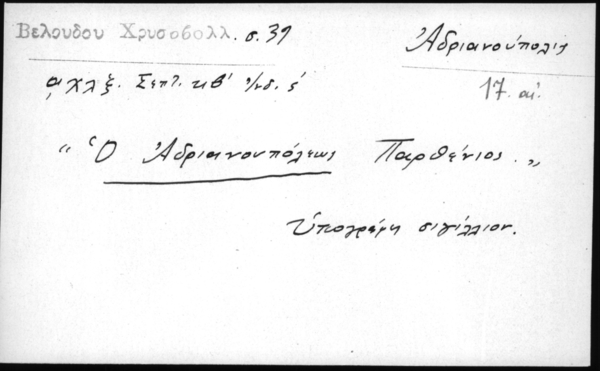 Βελουδου Χρυσοβουλλ. σ. 39
Ἀδριανούπολις
͵αχλξ. Σεπτ. κβ΄ ἰνδ. ε΄
17. αἰ.
"Ὁ Ἀδριανουπόλεως Παρθένιος."
Ὑπογράφει σιγίλλιον.